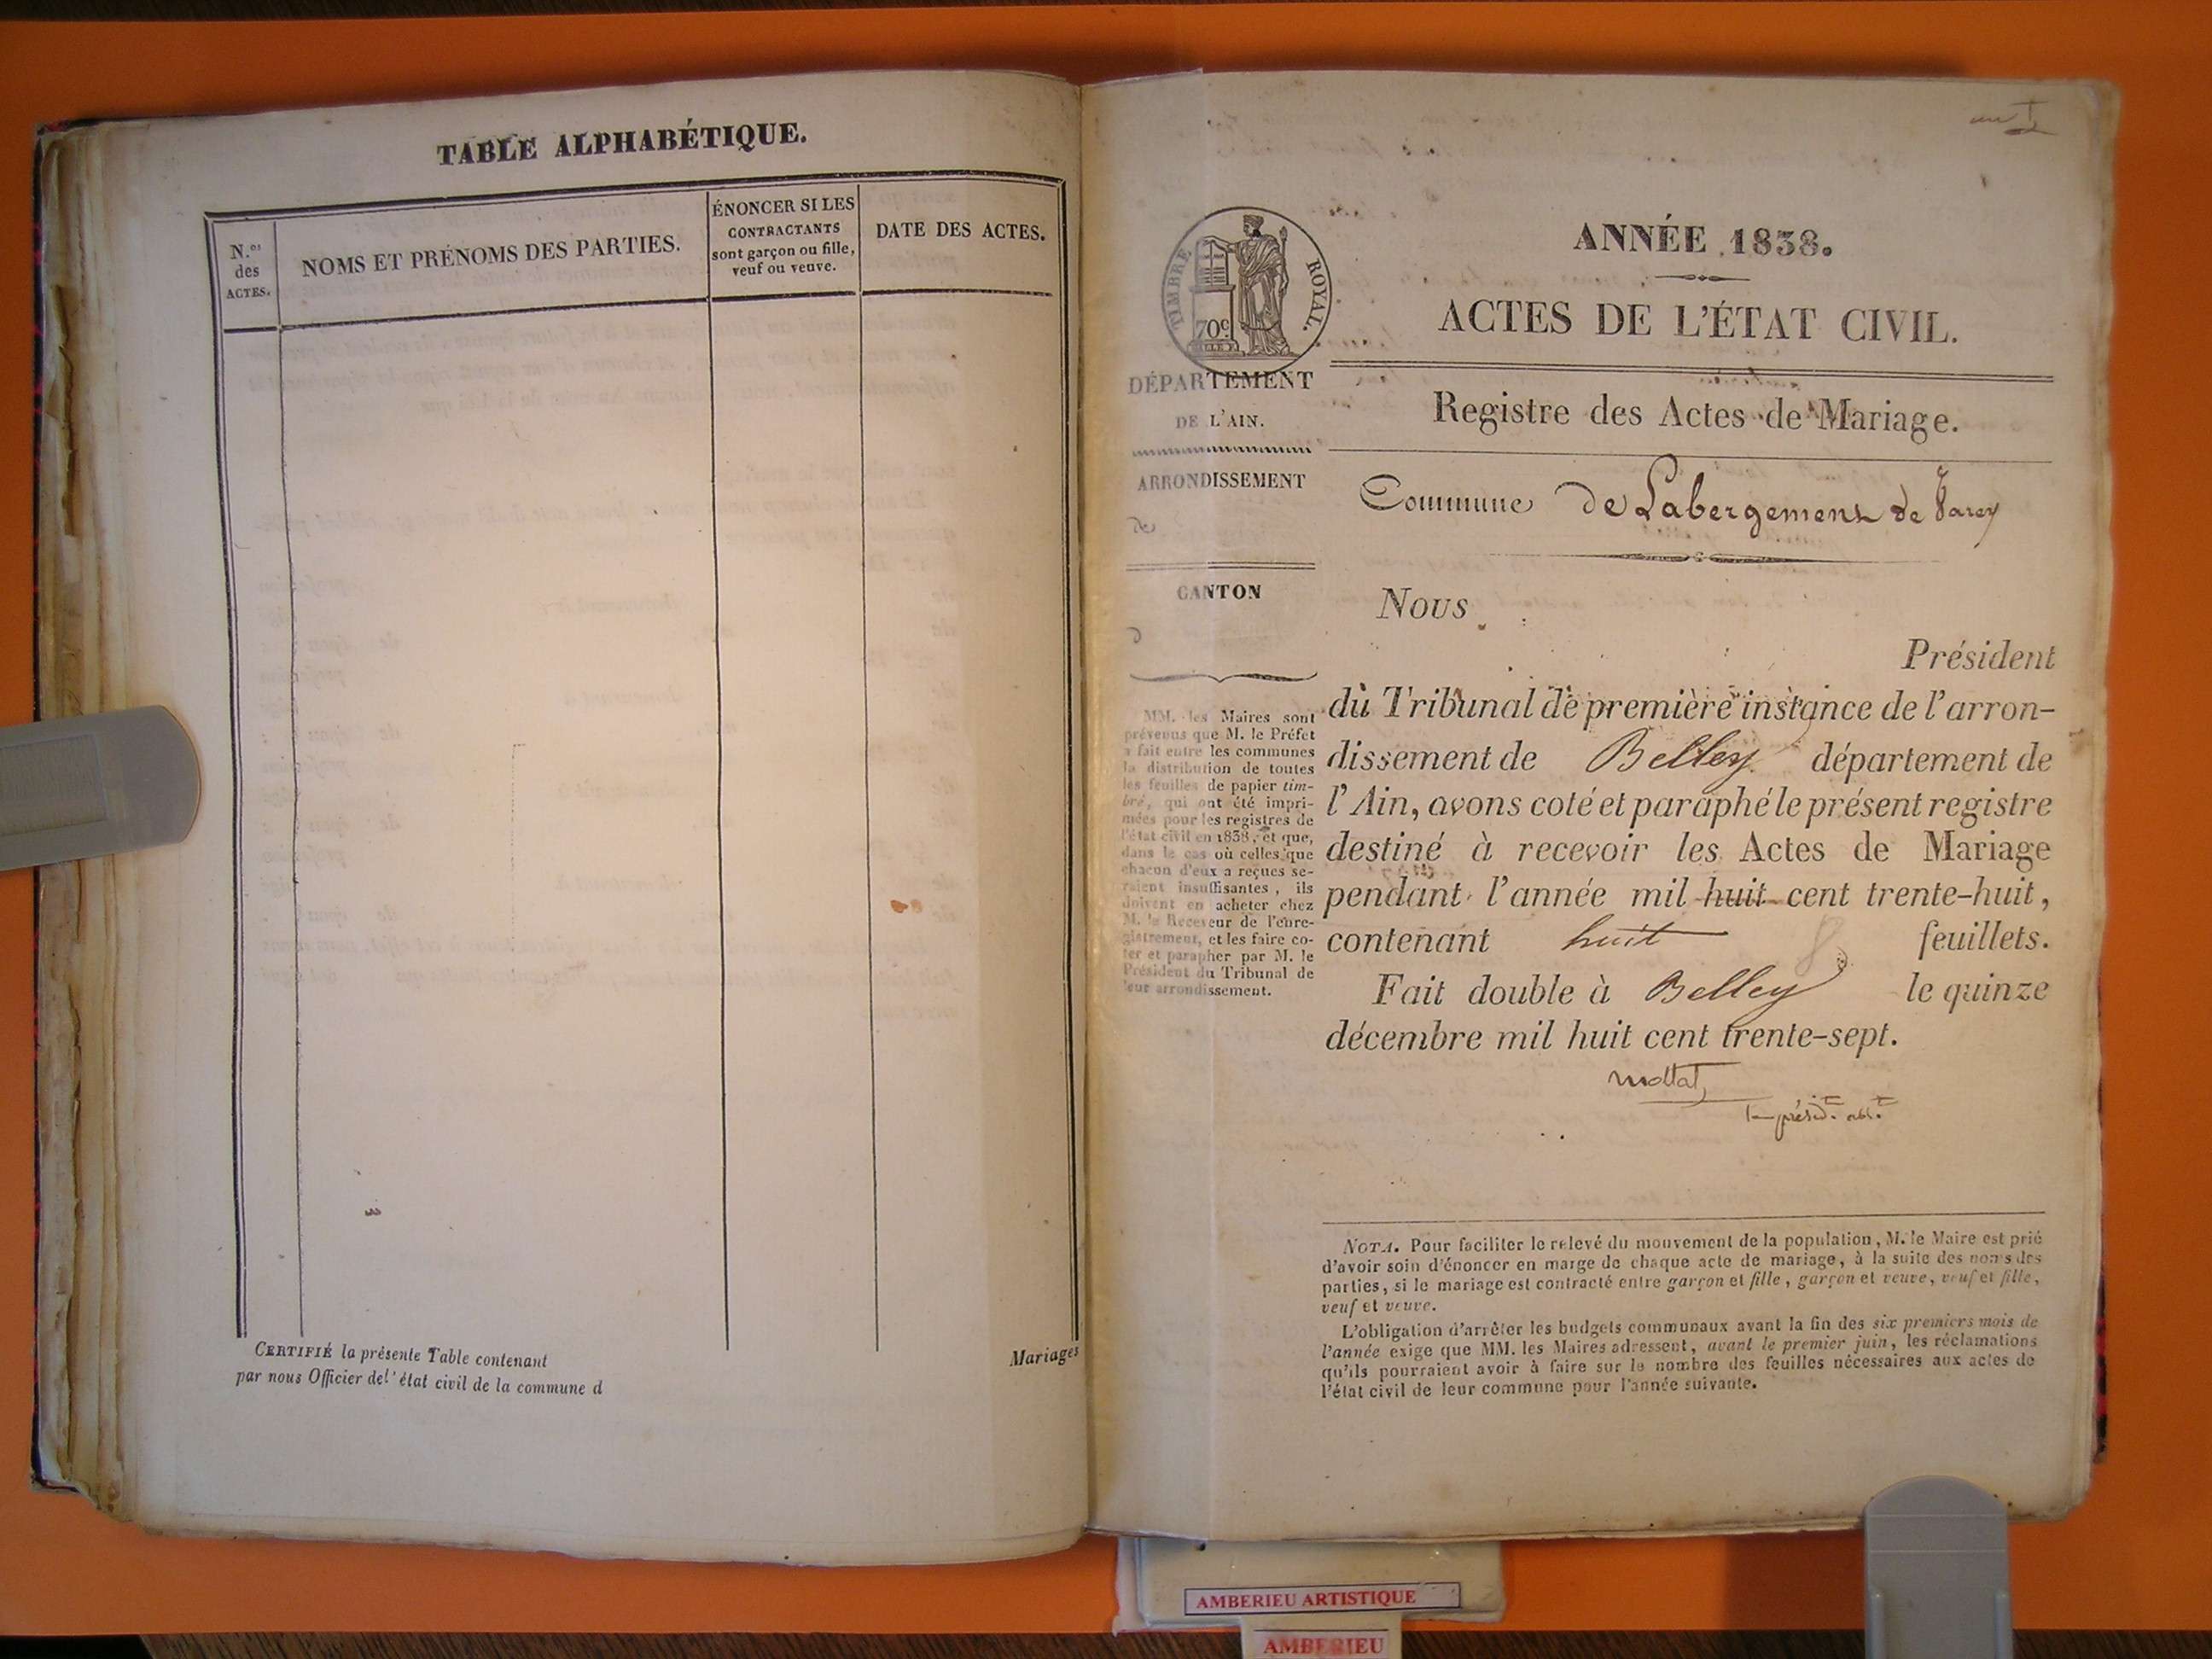 TABLE ALPHABÉTIQUE.
N.os
des
ACTES.
NOMS ET PRÉNOMS DES PARTIES.
ÉNONCER SI LES
CONTRACTANTS
sont garçon ou fille,
veuf ou veuve.
DATE DES ACTES.
CERTIFIÉ la présente Table contenant
par nous Officier de l'état civil de la commune d
Mariages
TIMBRE ROYAL.
70c
ANNÉE 1838.
ACTES DE L'ÉTAT CIVIL.
DÉPARTEMENT
DE L'AIN.
Registre des Actes de Mariage.
ARRONDISSEMENT
de
Commune de Labergement de Varey
CANTON
d
MM. les Maires sont
prévenus que M. le Préfet
a fait entre les communes
la distribution de toutes
les feuilles de papier tim-
bré, qui ont été impri-
mées pour les registres de
l'état civil en 1838, et que,
dans le cas où celles que
chacun d'eux a reçues se-
raient insuffisantes, ils
doivent en acheter chez
M. le Receveur de l'enre-
gistrement, et les faire co-
ter et parapher par M. le
Président du Tribunal de
leur arrondissement.
Nous
Président
du Tribunal de première instance de l'arron-
dissement de Belley département de
l'Ain, avons coté et paraphé le présent registre
destiné à recevoir les Actes de Mariage
pendant l'année mil huit cent trente-huit,
contenant huit 8 feuillets.
Fait double à Belley le quinze
décembre mil huit cent trente-sept.
NOTA. Pour faciliter le relevé du mouvement de la population, M. le Maire est prié
d'avoir soin d'énoncer en marge de chaque acte de mariage, à la suite des noms des
parties, si le mariage est contracté entre garçon et fille, garçon et veuve, veuf et fille,
veuf et veuve.
L'obligation d'arrêter les budgets communaux avant la fin des six premiers mois de
l'année exige que MM. les Maires adressent, avant le premier juin, les réclamations
qu'ils pourraient avoir à faire sur le nombre des feuilles nécessaires aux actes de
l'état civil de leur commune pour l'année suivante.
AMBERIEU ARTISTIQUE
AMBERIEU